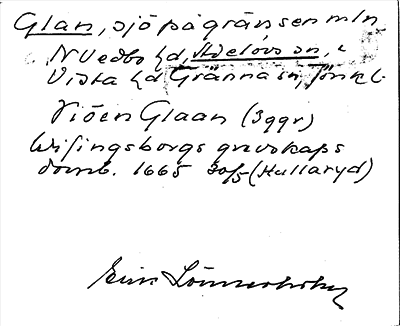 Glan, sjö på gränsen mln
N Vedbo hd, Adelövs sn,
Vista hd Gränna sn, Jönk l.
Siöen Glaan (3 ggr)
Wisingsborgs grevskaps
domb. 1665 30/5 (Hullaryd)